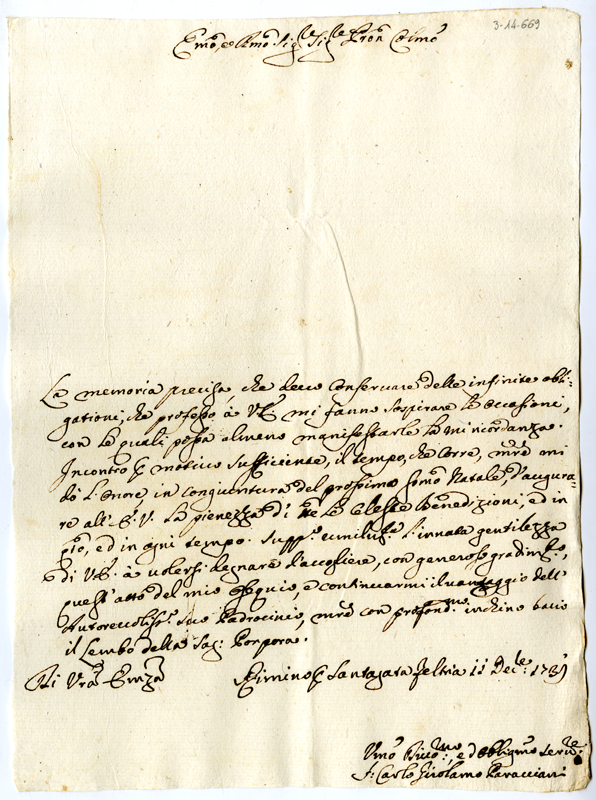 3-14-669
Emo, e Rmo Sigre Sigre Pron Colmo
La memoria precisa che devo conservare delle infinite obli=
gationi, che professo à V.E. mi fanno sospirare le occasioni,
con le quali possa almeno manifestarle la mi
Incontro p motivo sufficiente, il tempo, che corre, mre mi
dò l'onore, in congiuntura del prossimo Smo Natale, d'augura=
re all' E.V. la pienezza di le Celeste Benedizioni, ed in
pio, ed in ogni tempo. Suppco umilmte l'innata gentilezza
di V.E. à volersi degnare d'accogliere, con generoso gradimto,
quest'atto del mio ossequio, e continuarmi il vantaggio dell'
Autorevolissmo suo Padrocinio, mre con profondmo inchino bacio
il Lembo della Sag: Porpora.
Di Vra Emza Rimino p Santagata Feltria 11 Decre 173
Umo Divmo, e d obbligmo Servre
F: Carlo Girolamo Paracciani